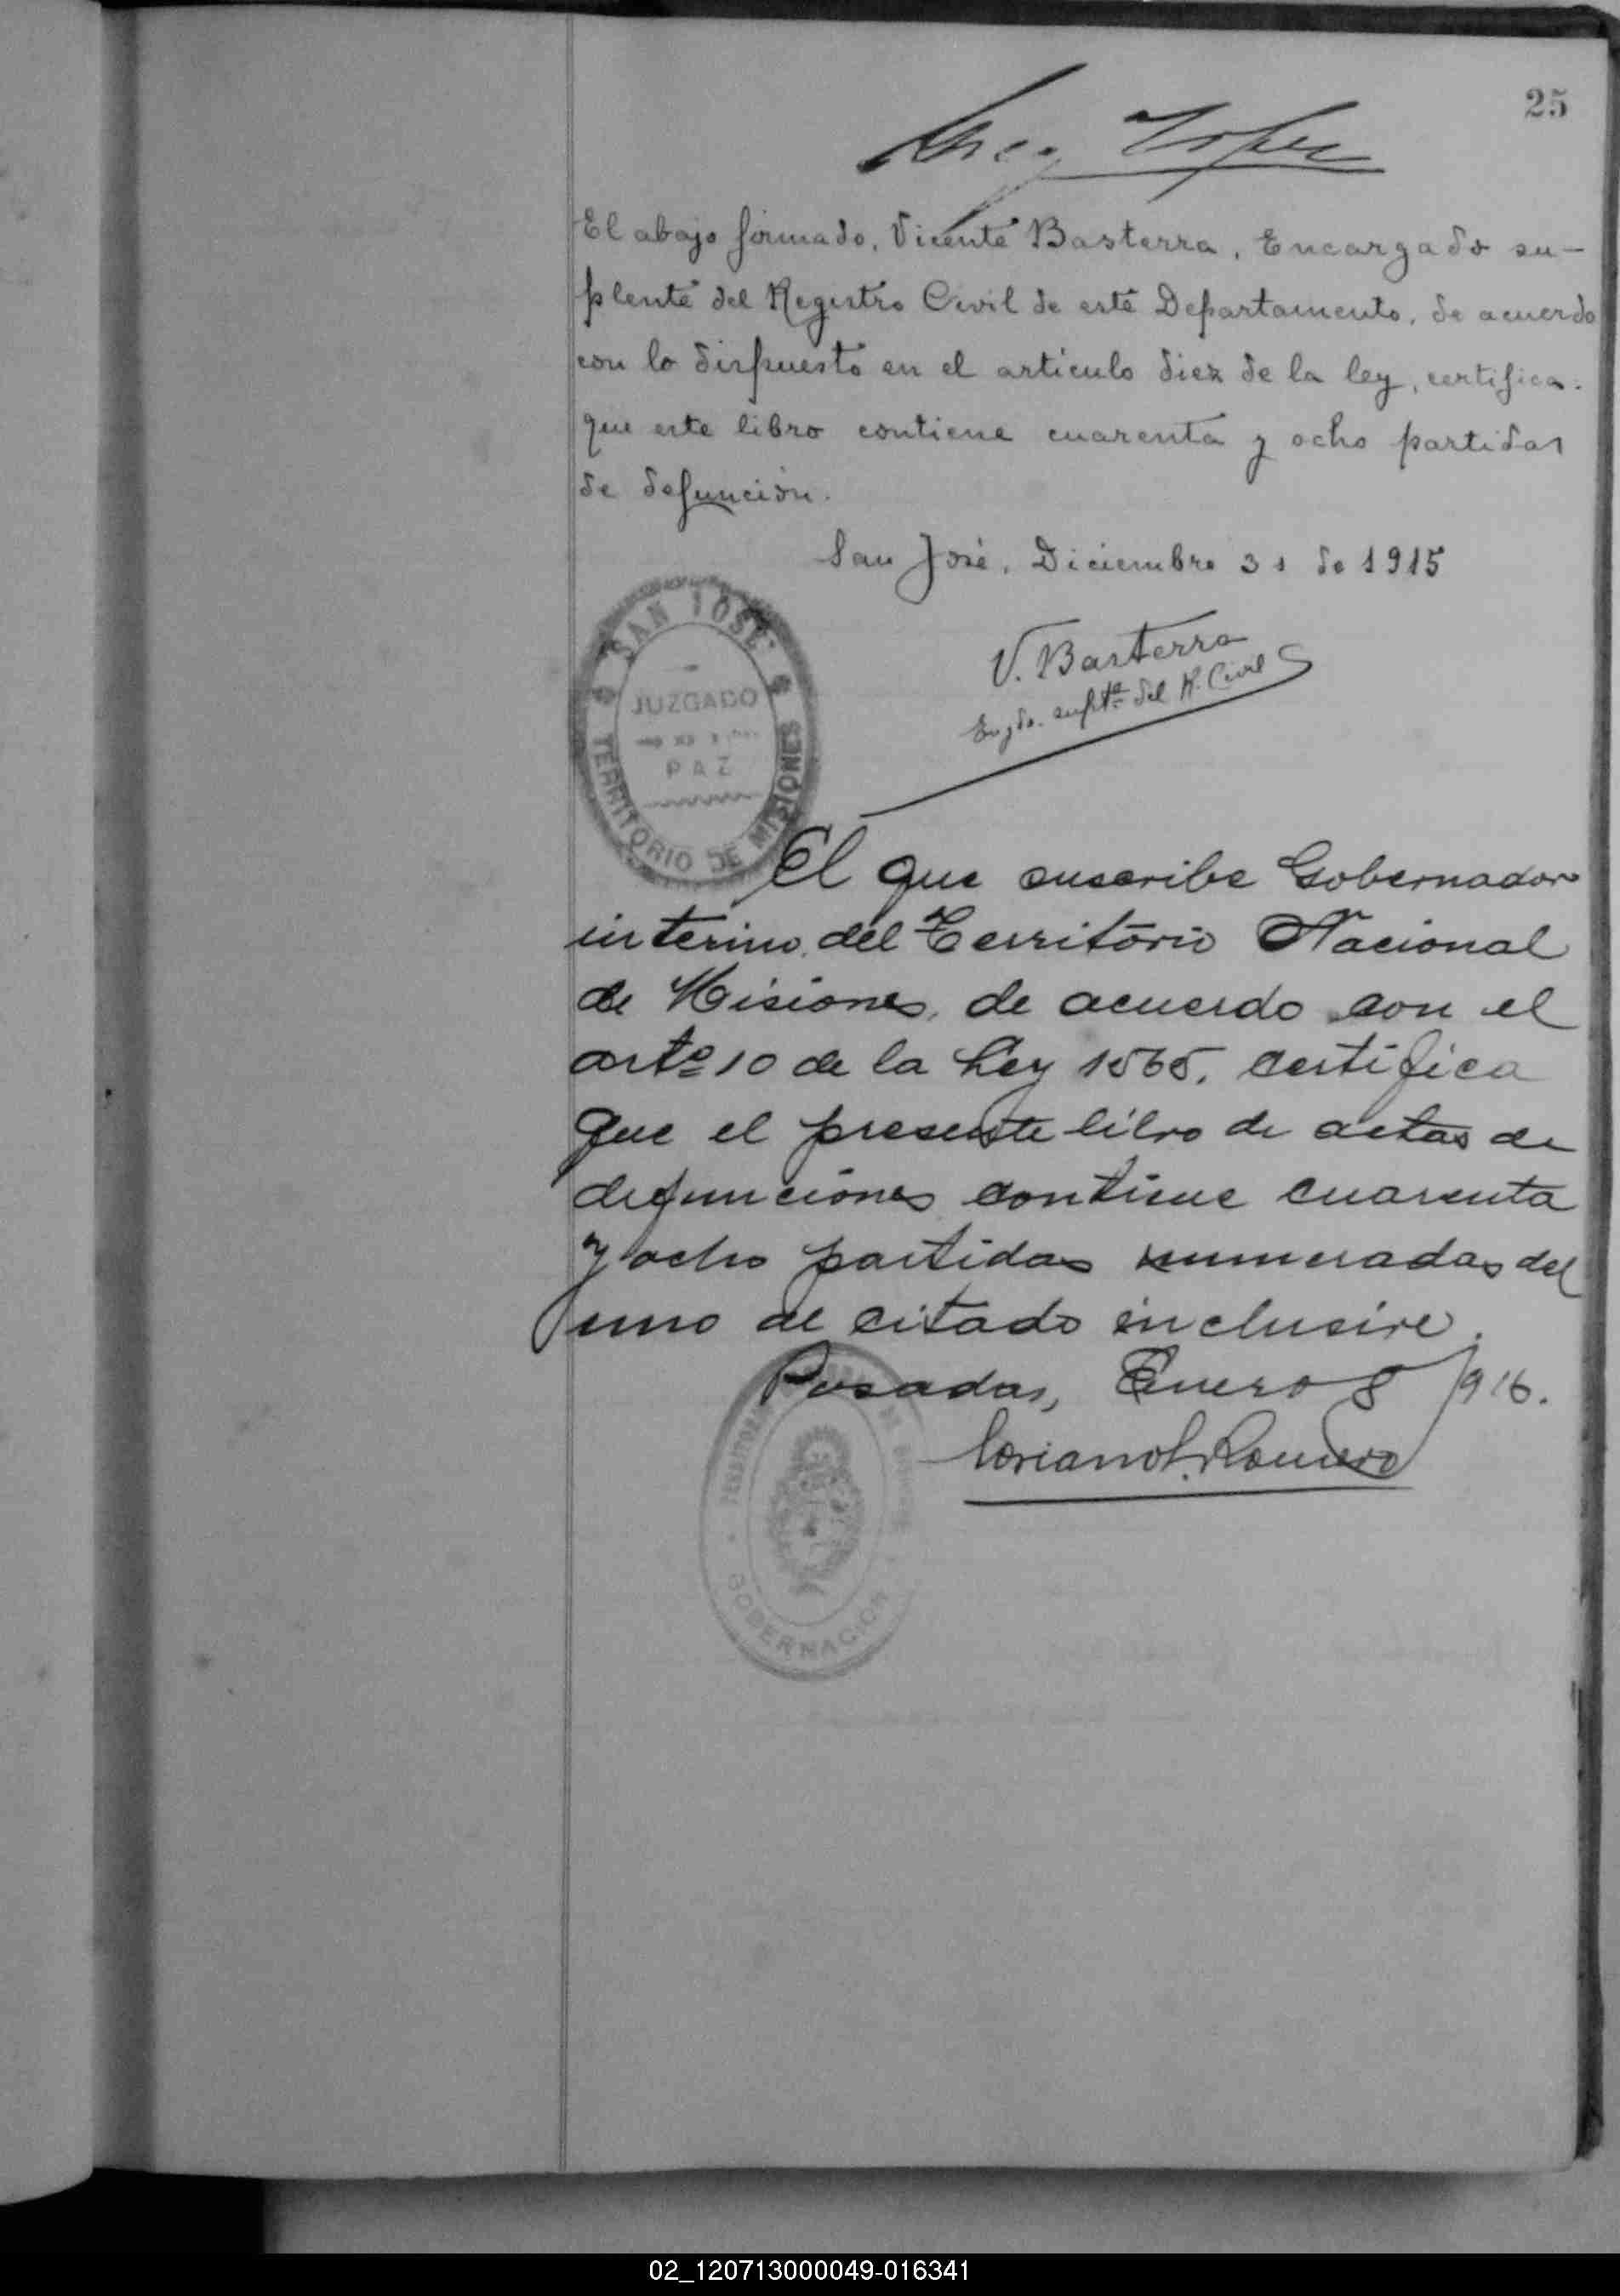 25
El abajo firmado, Vicente Basterra, Encargado su-
plente del Registro Civil de este Departamento, de acuerdo
con lo dispuesto en el artículo diez de la ley, certifica:
que este libro contiene cuarenta y ocho partidas
de defunción.
San José, Diciembre 31 de 1915
V. Basterra
Engdo. suplte. del R. Civil
SAN JOSE
JUZGADO
PAZ
TERRITORIO DE MISIONES
El que suscribe Gobernador
interino del Territorio Nacional
de Misiones, de acuerdo con el
arto 10 de la Ley 1565, certifica
que el presente libro de actas de
defunciones contiene cuarenta
y ocho partidas numeradas del
uno al citado inclusive.
Posadas, Enero 8/916.
Romero
GOBERNACION
02_120713000049-016341